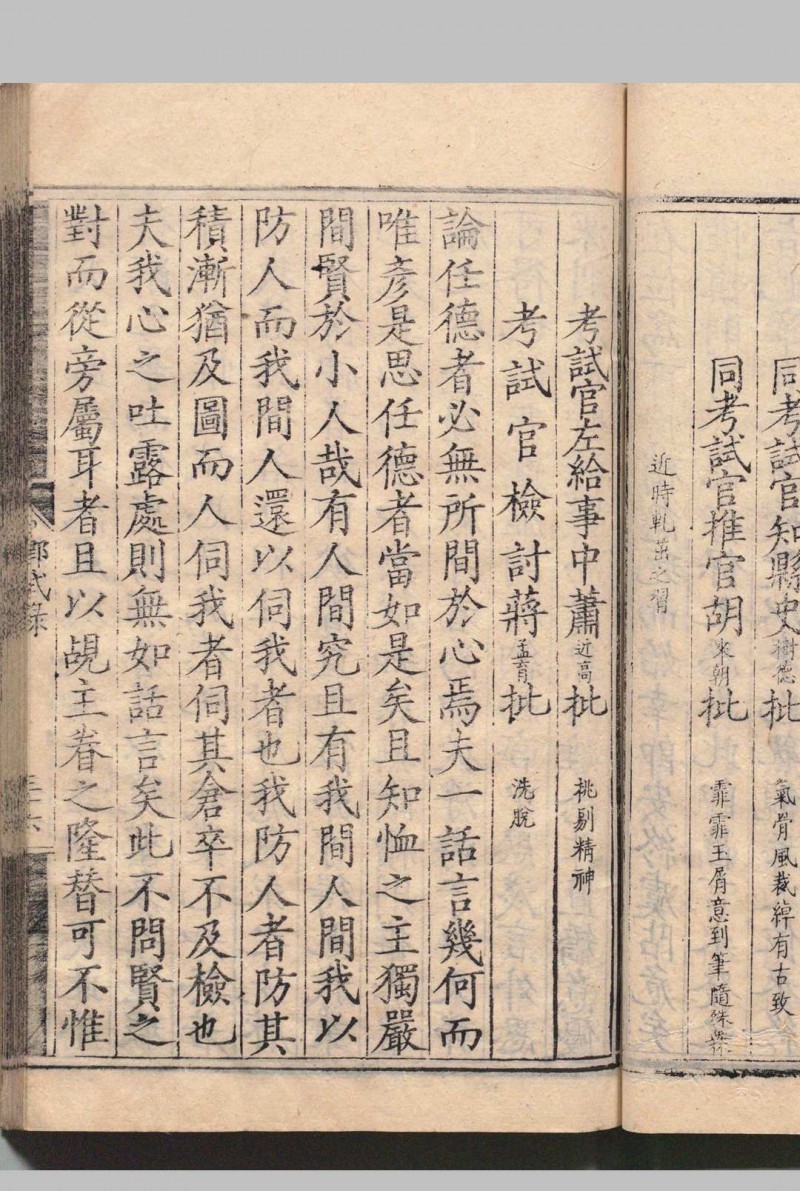 同考試官知縣史樹德批 氣骨風裁綽有古致
同考試官推官胡來朝批 霏霏玉屑意到筆隨殊無
近時軋茁之習
考試官左給事中蕭近高批 桃剔精神
考試官檢討蔣孟育批 洗脫
論任德者必無所間於心焉夫一話言幾何而
唯彥是思任德者當如是矣且知恤之主獨嚴
間賢於小人哉有人間究且有我間人間我以
防人而我間人還以伺我者也我防人者防其
積漸猶及圖而人伺我者伺其倉卒不及檢也
夫我心之吐露處則無如話言矣此不問賢之
對而從旁屬耳者且以覘主眷之隆替可不惟
鄉試錄